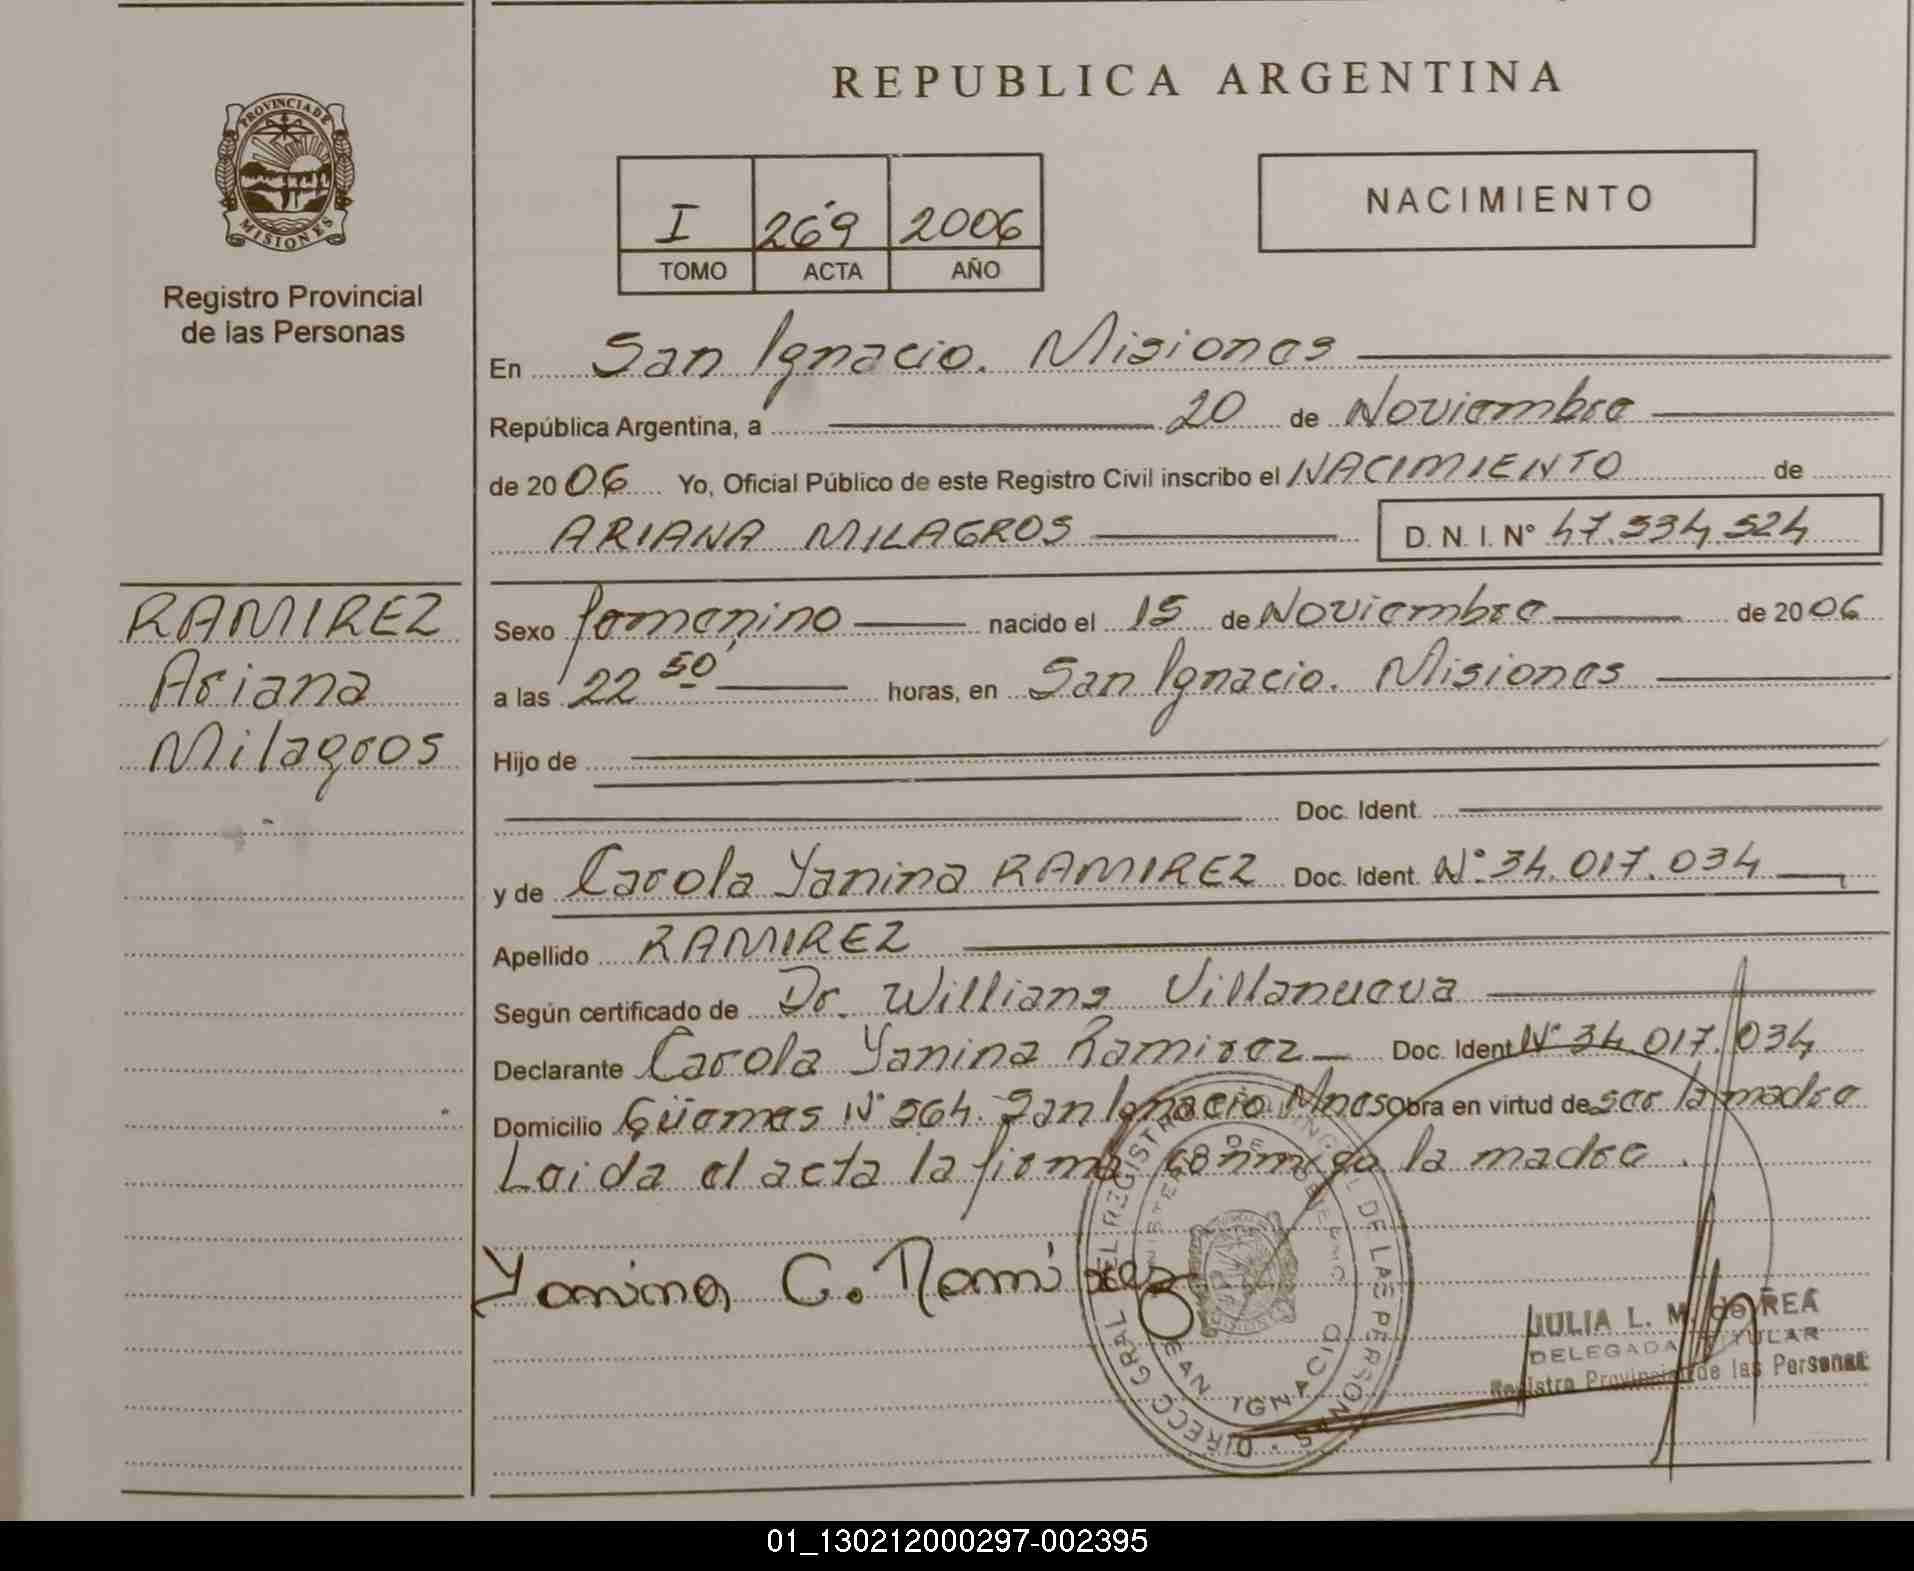 REPUBLICA ARGENTINA
PROVINCIA DE
MISIONES
Registro Provincial
de las Personas
I 269 2006
TOMO ACTA AÑO
NACIMIENTO
En San Ignacio. Misiones
República Argentina, a 20 de Noviembre
de 2006 Yo, Oficial Público de este Registro Civil inscribo el NACIMIENTO de
ARIANA MILAGROS D. N. I. N° 47.534.524
RAMIREZ
Ariana
Milagros
Sexo femenino nacido el 15 de Noviembre de 2006
a las 22 50 horas, en San Ignacio. Misiones
Hijo de
Doc. Ident.
y de Carola Yanina RAMIREZ Doc. Ident. N° 34.017.034
Apellido RAMIREZ
Según certificado de Dr. Willians Villanueva
Declarante Carola Yanina Ramirez Doc. Ident N° 34.017.034
Domicilio Güemes N° 564. San Ignacio Mnes Obra en virtud de ser la madre
Leida el acta la firma conmigo la madre.
Yanina C. Ramirez
DIRECC GRAL DEL REGISTRO PROVINCIAL DE LAS PERSONAS
MINISTERIO DE GOBIERNO
SAN IGNACIO
JULIA L. M. de REA
DELEGADA TITULAR
Registro Provincial de las Personas
01_130212000297-002395